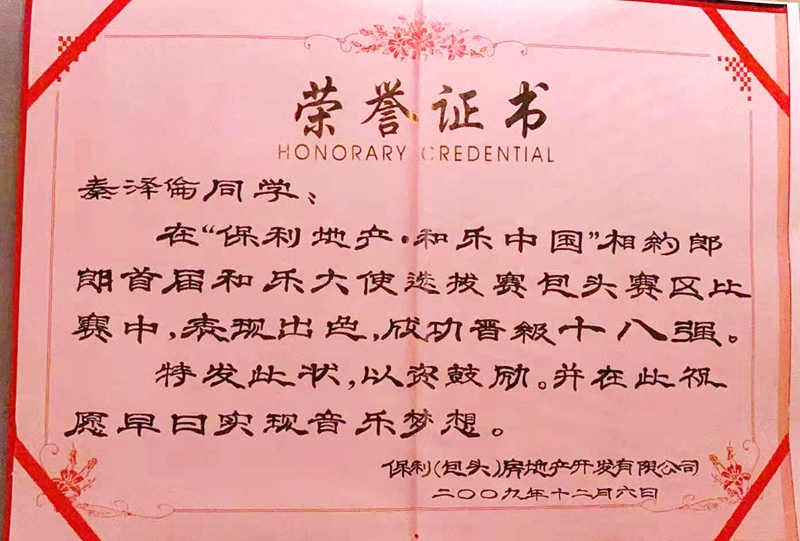 荣誉证书
HONORARY CREDENTIAL
秦泽倫同学：
在“保利地产·和乐中国”相約郎
朗首届和乐大使选拔赛包头赛区比
赛中，表现出色，成功晋級十八强。
特发此状，以资鼓励。并在此祝
愿早日实现音乐梦想。
保利（包头）房地产开发有限公司
二〇〇九年十二月六日